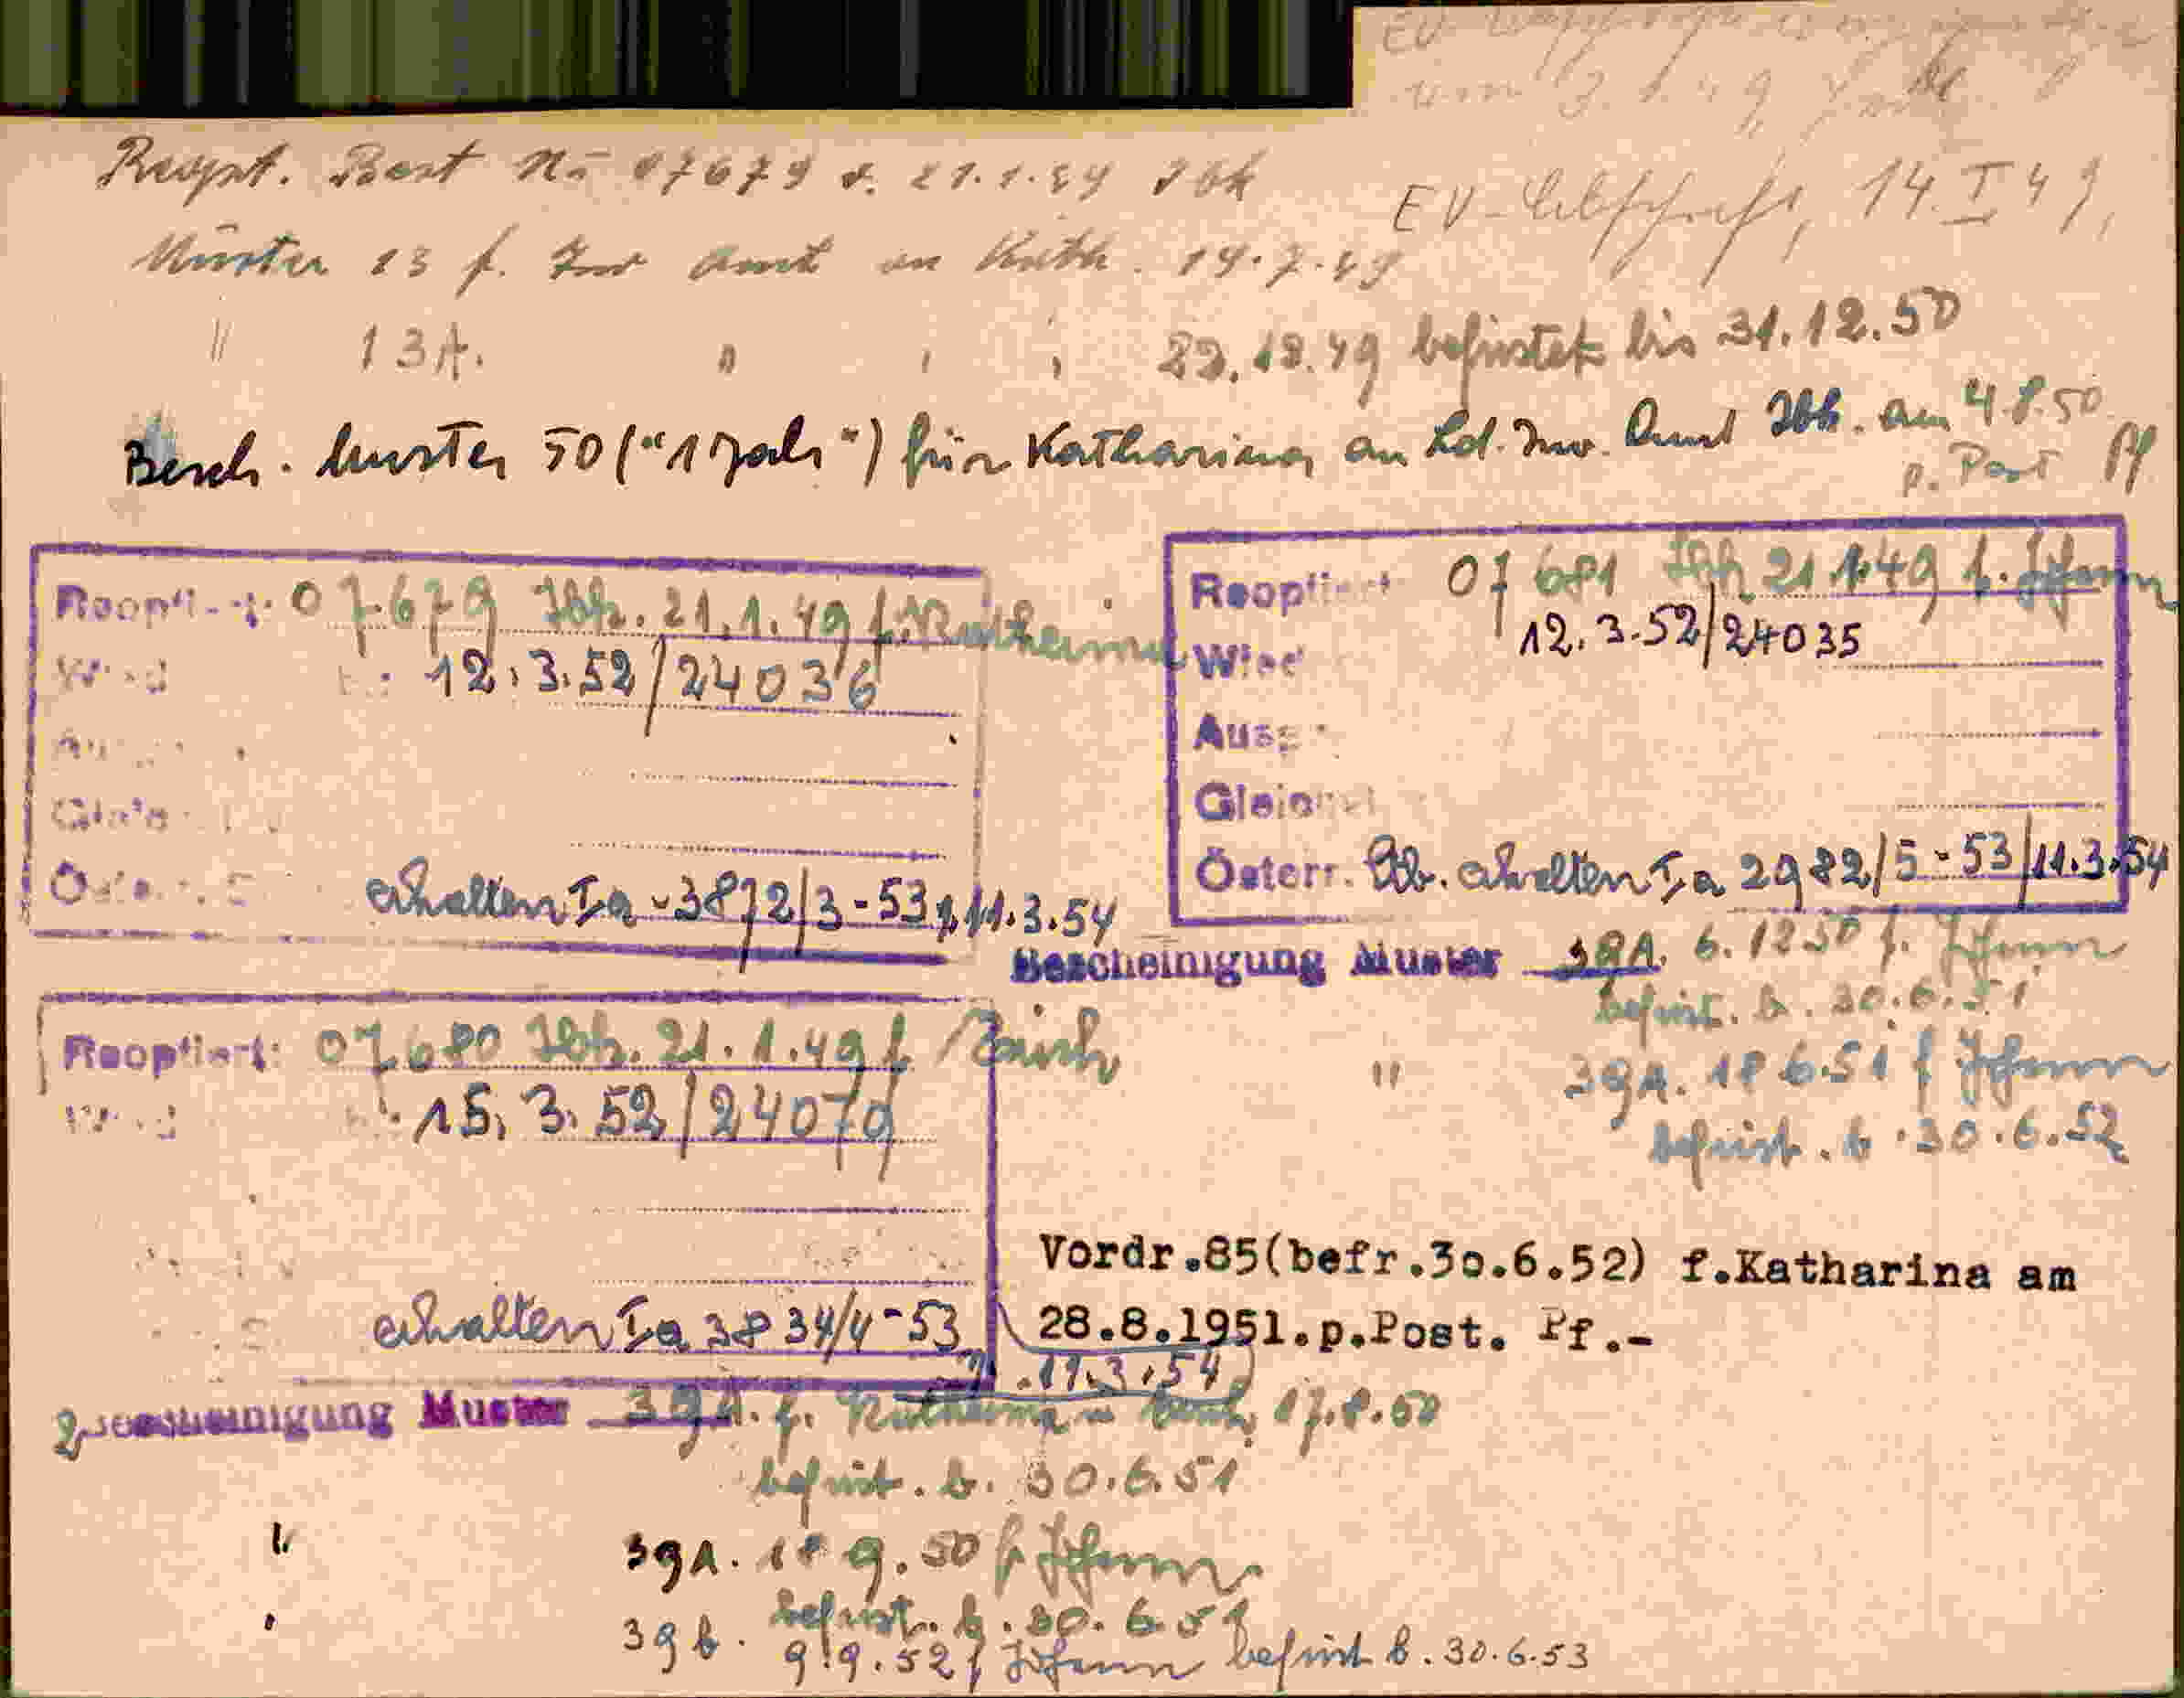 EV-Abschrift, 14.I.49,
Reopt. Best No 07679 v. 21.1.49 Ibk
Muster 13 f. Inv Amt an Kath. 19.7.49
" 13A. " " " 22.12.49 befristet bis 31.12.50
Besch. Muster 50 ("1 Jahr") für Katharina an Ld. Inv. Amt Ibk. am 4.8.50
p. Post Pf
Reoptiert: 07679 Ibk. 21.1.49 f. Katharina
12.3.52/24036
erhalten Ia-3872/3-53 11.3.54
Reoptiert 07681 Ibk 21.1.49 f. Johann
Wied 12.3.52/24035
Ausg
Gleich
Österr. Stb. erhalten Ia 2982/5-53/11.3.54
Bescheinigung Muster 39A. 6.12 50 f. Johann
befrist. b. 30.6.51
" 39A. 18 6.51 f Johann
befrist. b. 30.6.52
Reoptiert: 07680 Ibk. 21.1.49 f Erich
15.3.52/24079
erhalten Ia 3834/4-53
11.3.54
Vordr.85(befr.3o.6.52) f.Katharina am
28.8.1951.p.Post. Pf.-
2 Bescheinigung Muster 39A. f. Katharina u Erich, 17.8.50
befrist. b. 30.6.51
" 39A. 18 9.50 f Johann
befrist. b. 30.6.51
" 39b. 9.9.52 f Johann befrist b. 30.6.53